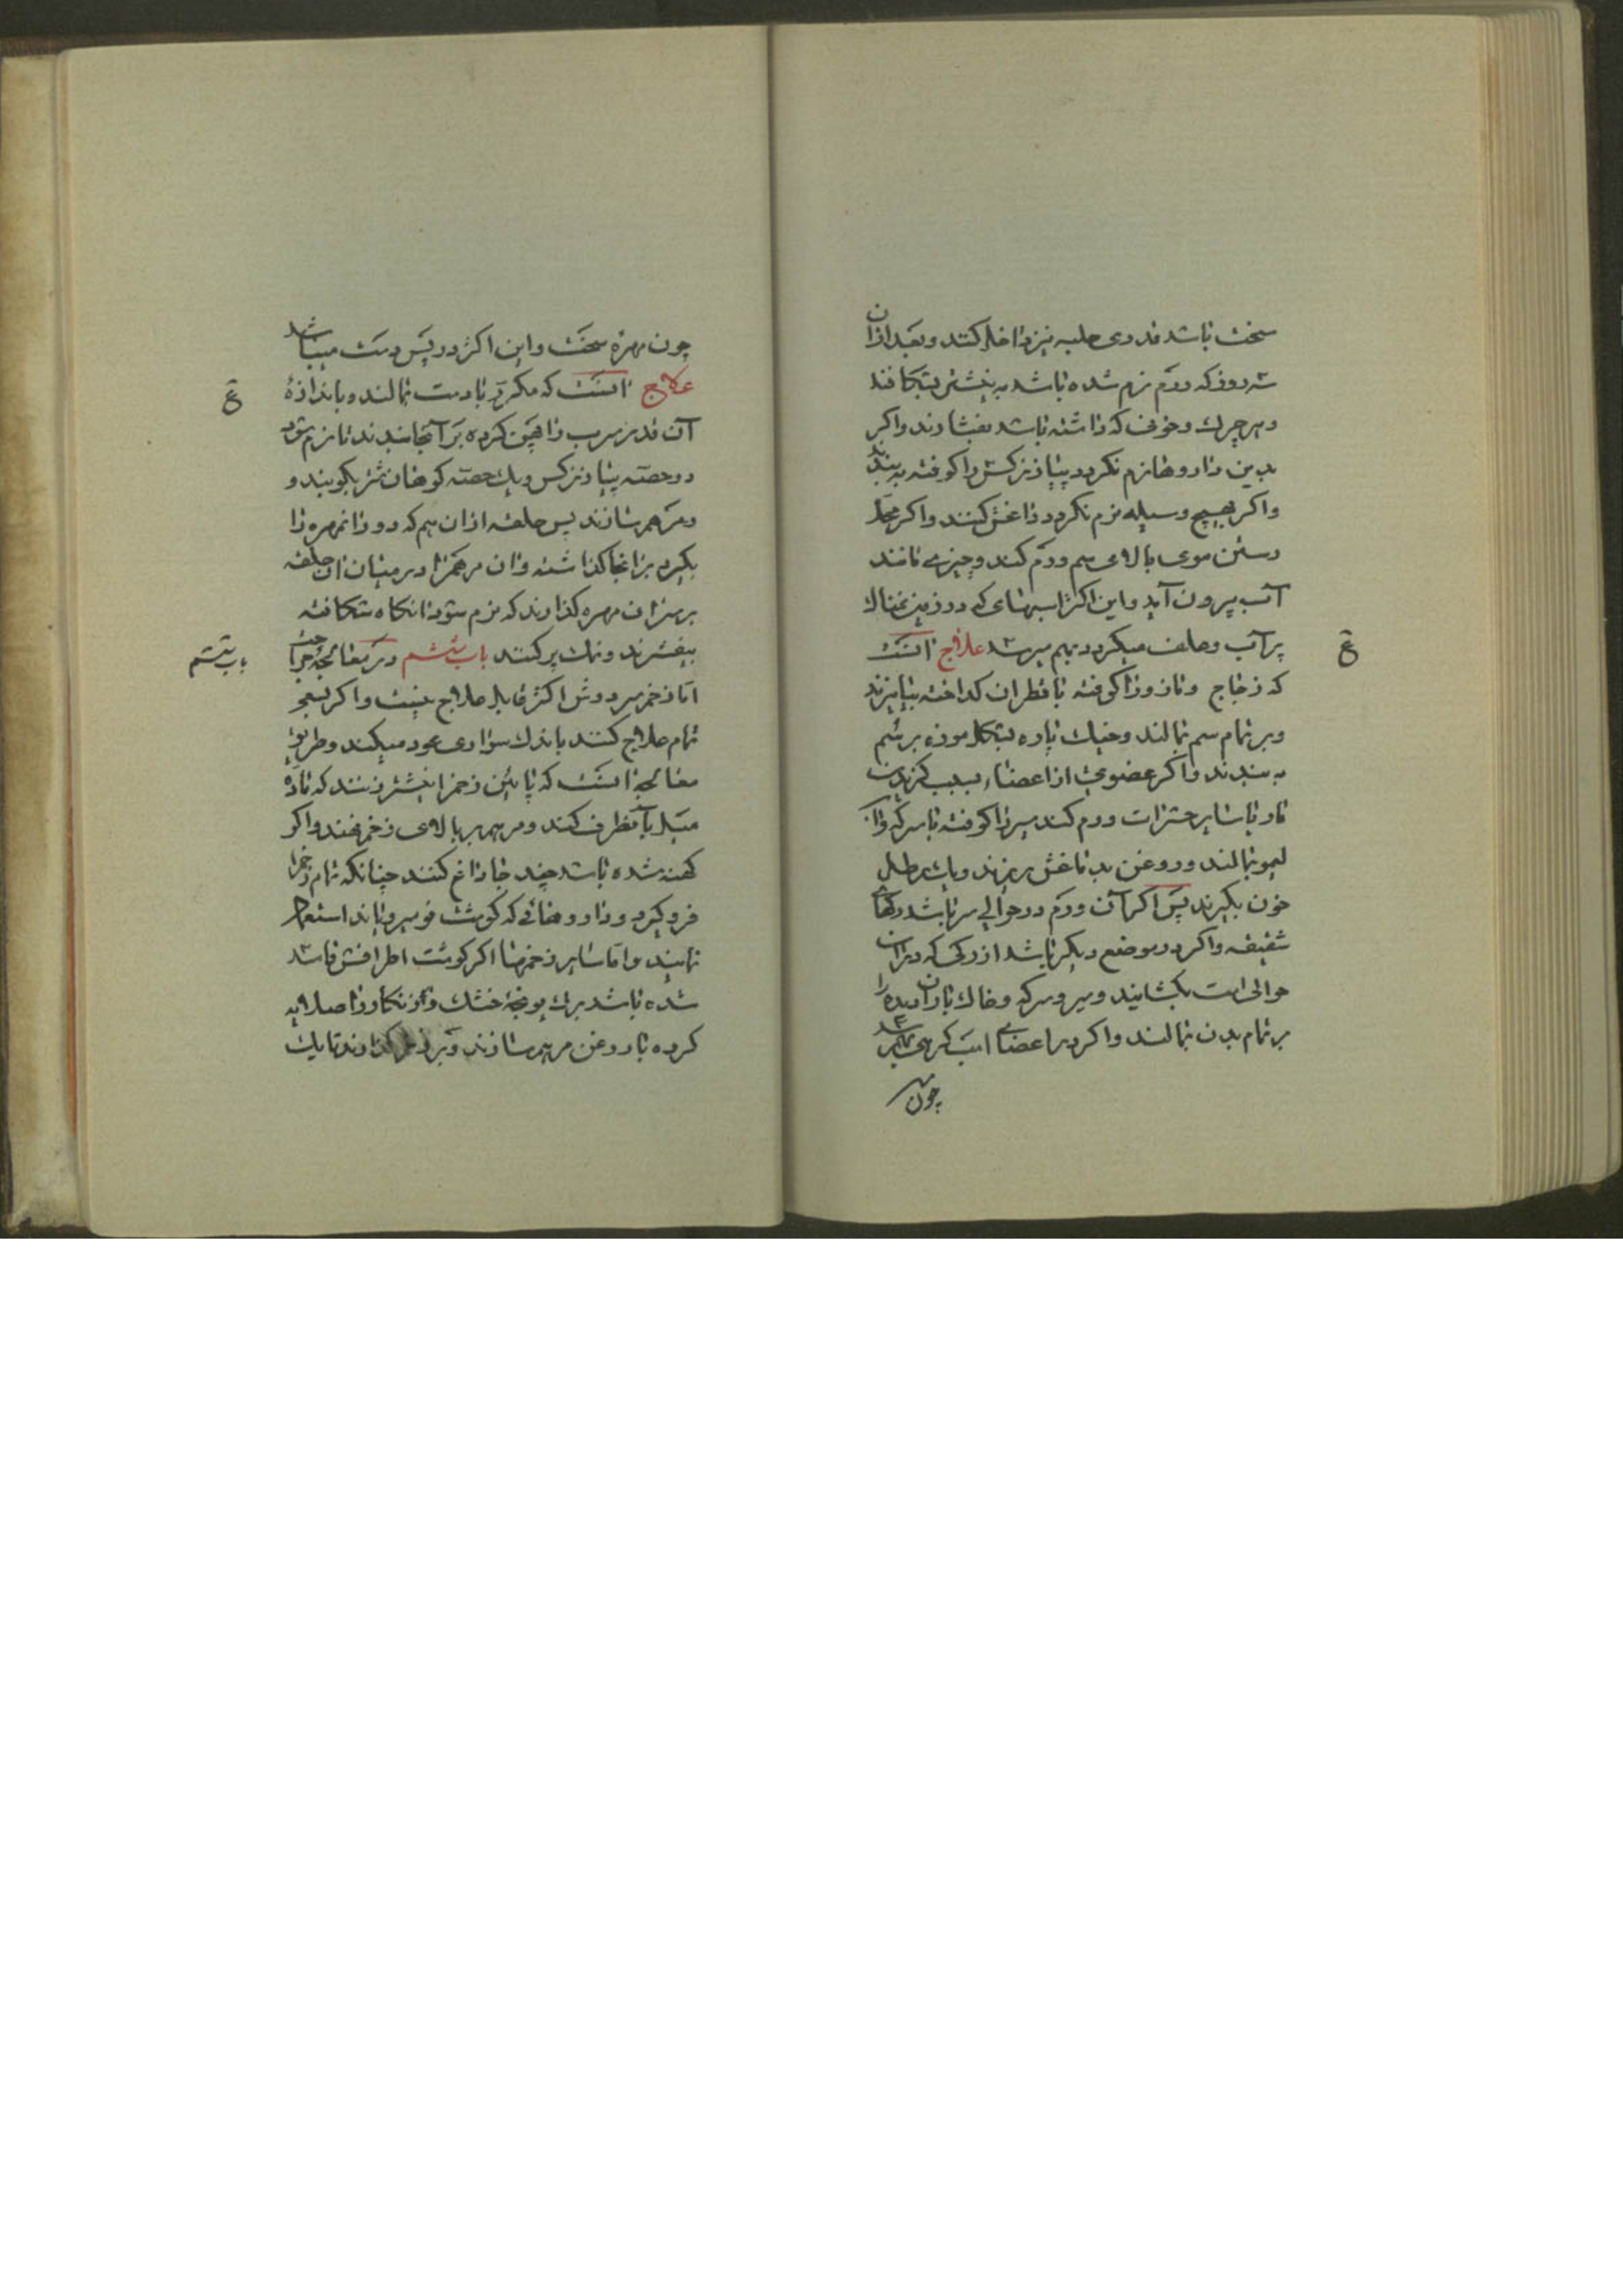 سخت باشد قدری حلبه نیز داخل کنند و بعد ازان
سه روز که ورم نرم شده باشد به نیشتر بشکافند
و هر چرک و خونی که داشته باشد بفشارند و اکر
بدین داروها نرم نکردد پیاز نرکس را کوفته به بندند
و اکر بهیچ وسیله نرم نکردد داغش کنند و اکر محل
رستن موی بالای سم ورم کند و چیزی مانند
آب بیرون آید و این اکثر اسبهای که در زمین نمناک
پر آب و علف میکردد بهم میرسد علاج آنست
ع
که زجاج و مازو را کوفته با قطران کداخته بیامیزند
و بر تمام سم بمالند و خیک پاره بشکل موزه بر سم
به بندند و اکر عضوی از اعضاء بسبب کزیدن
مار یا سایر حشرات ورم کند سیر را کوفته با سرکه و آب
لیمو بمالند و روغن بدماغش بریزند و یک رطل
خون بکیرند پس اکر آن ورم در حوالی سر باشد رکهای
شقیقه و اکر در موضع دیکر باشد از رکی که در آن
حوالی است بکشایند و سیر و سرکه و خاک باران دیده را
بر تمام بدن بمالند و اکر در اعضای اسب کرهی بهم رسد
چون
چون مهره سخت و این اکثر در پس دست میباشد
علاج آنست که مکرر با دست بمالند و باندازهٔ
ع
آن قدر سرب را پهن کرده بر آنجا بندند تا نرم شود
دو حصه پیاز نرکس و یک حصه کوهان شتر بکوبند و
و مرهم سازند پس حلقه از آن سم که دور آنمهره را
بکیرد بر آنجا کذاشته و آن مرهم را در میان آن حلقه
بر سر آن مهره کذارند که نرم شود آنکاه شکافته
بیفشرند و نمک پر کنند باب ششم در معالجهٔ جراحت
باب ششم
اما زخم سر دوش اکثر قابل علاج نیست و اکر بسعی
تمام علاج کنند باندک سواری عود میکند و طریق
معالجه آنست که پائین زخم را نیشتر زنند که ماده
میل بآنطرف کند و مرهم بر بالای زخم نهند و اکر
کهنه شده باشد چند جا داغ کنند چنانکه تمام زخم را
فرو کیرد و داروهائی که کوشت نو میرویاند استعمال
نمایند و اما سایر زخمها اکر کوشت اطرافش فاسد
شده باشد برک یونجه خشک و زنکار را صلایه
کرده با روغن مرهم سازند و بر زخم کذارند تا یک